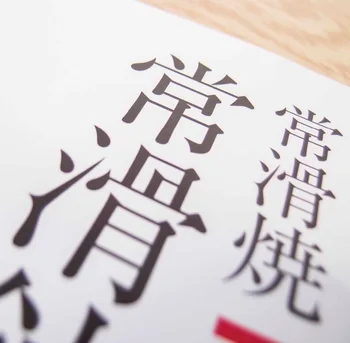 常滑焼
常滑